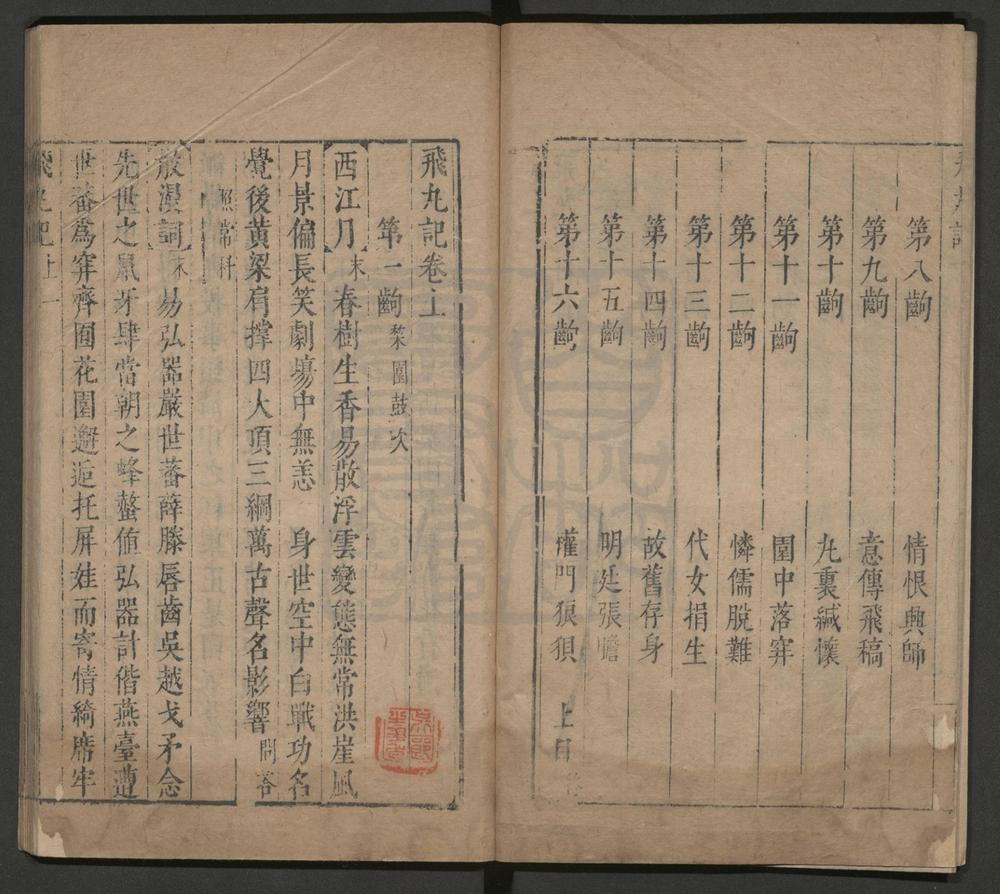 第八齣 情恨興師
第九齣 意傳飛稿
第十齣 丸裏緘懷
第十一齣 園中落穽
第十二齣 憐儒脫難
第十三齣 代女捐生
第十四齣 故舊存身
第十五齣 明廷張膽
第十六齣 權門狼狽 上目
飛丸記卷上
第一齣 梨園鼓吹
西江月 末 春樹生香易散浮雲變態無常洪崖風
月景偏長笑劇場中無恙 身世空中白戰功名
覺後黃粱肩撑四大頂三綱萬古聲名影響 問答
照常科
散漫詞 末 易弘器嚴世蕃薛滕唇齒吳越戈矛念
先世之鼠牙肆當朝之蜂螫値弘器計偕燕臺遭
世蕃爲穽齊園花園邂逅托屏娃而寄情綺席牢
飛丸記上 一